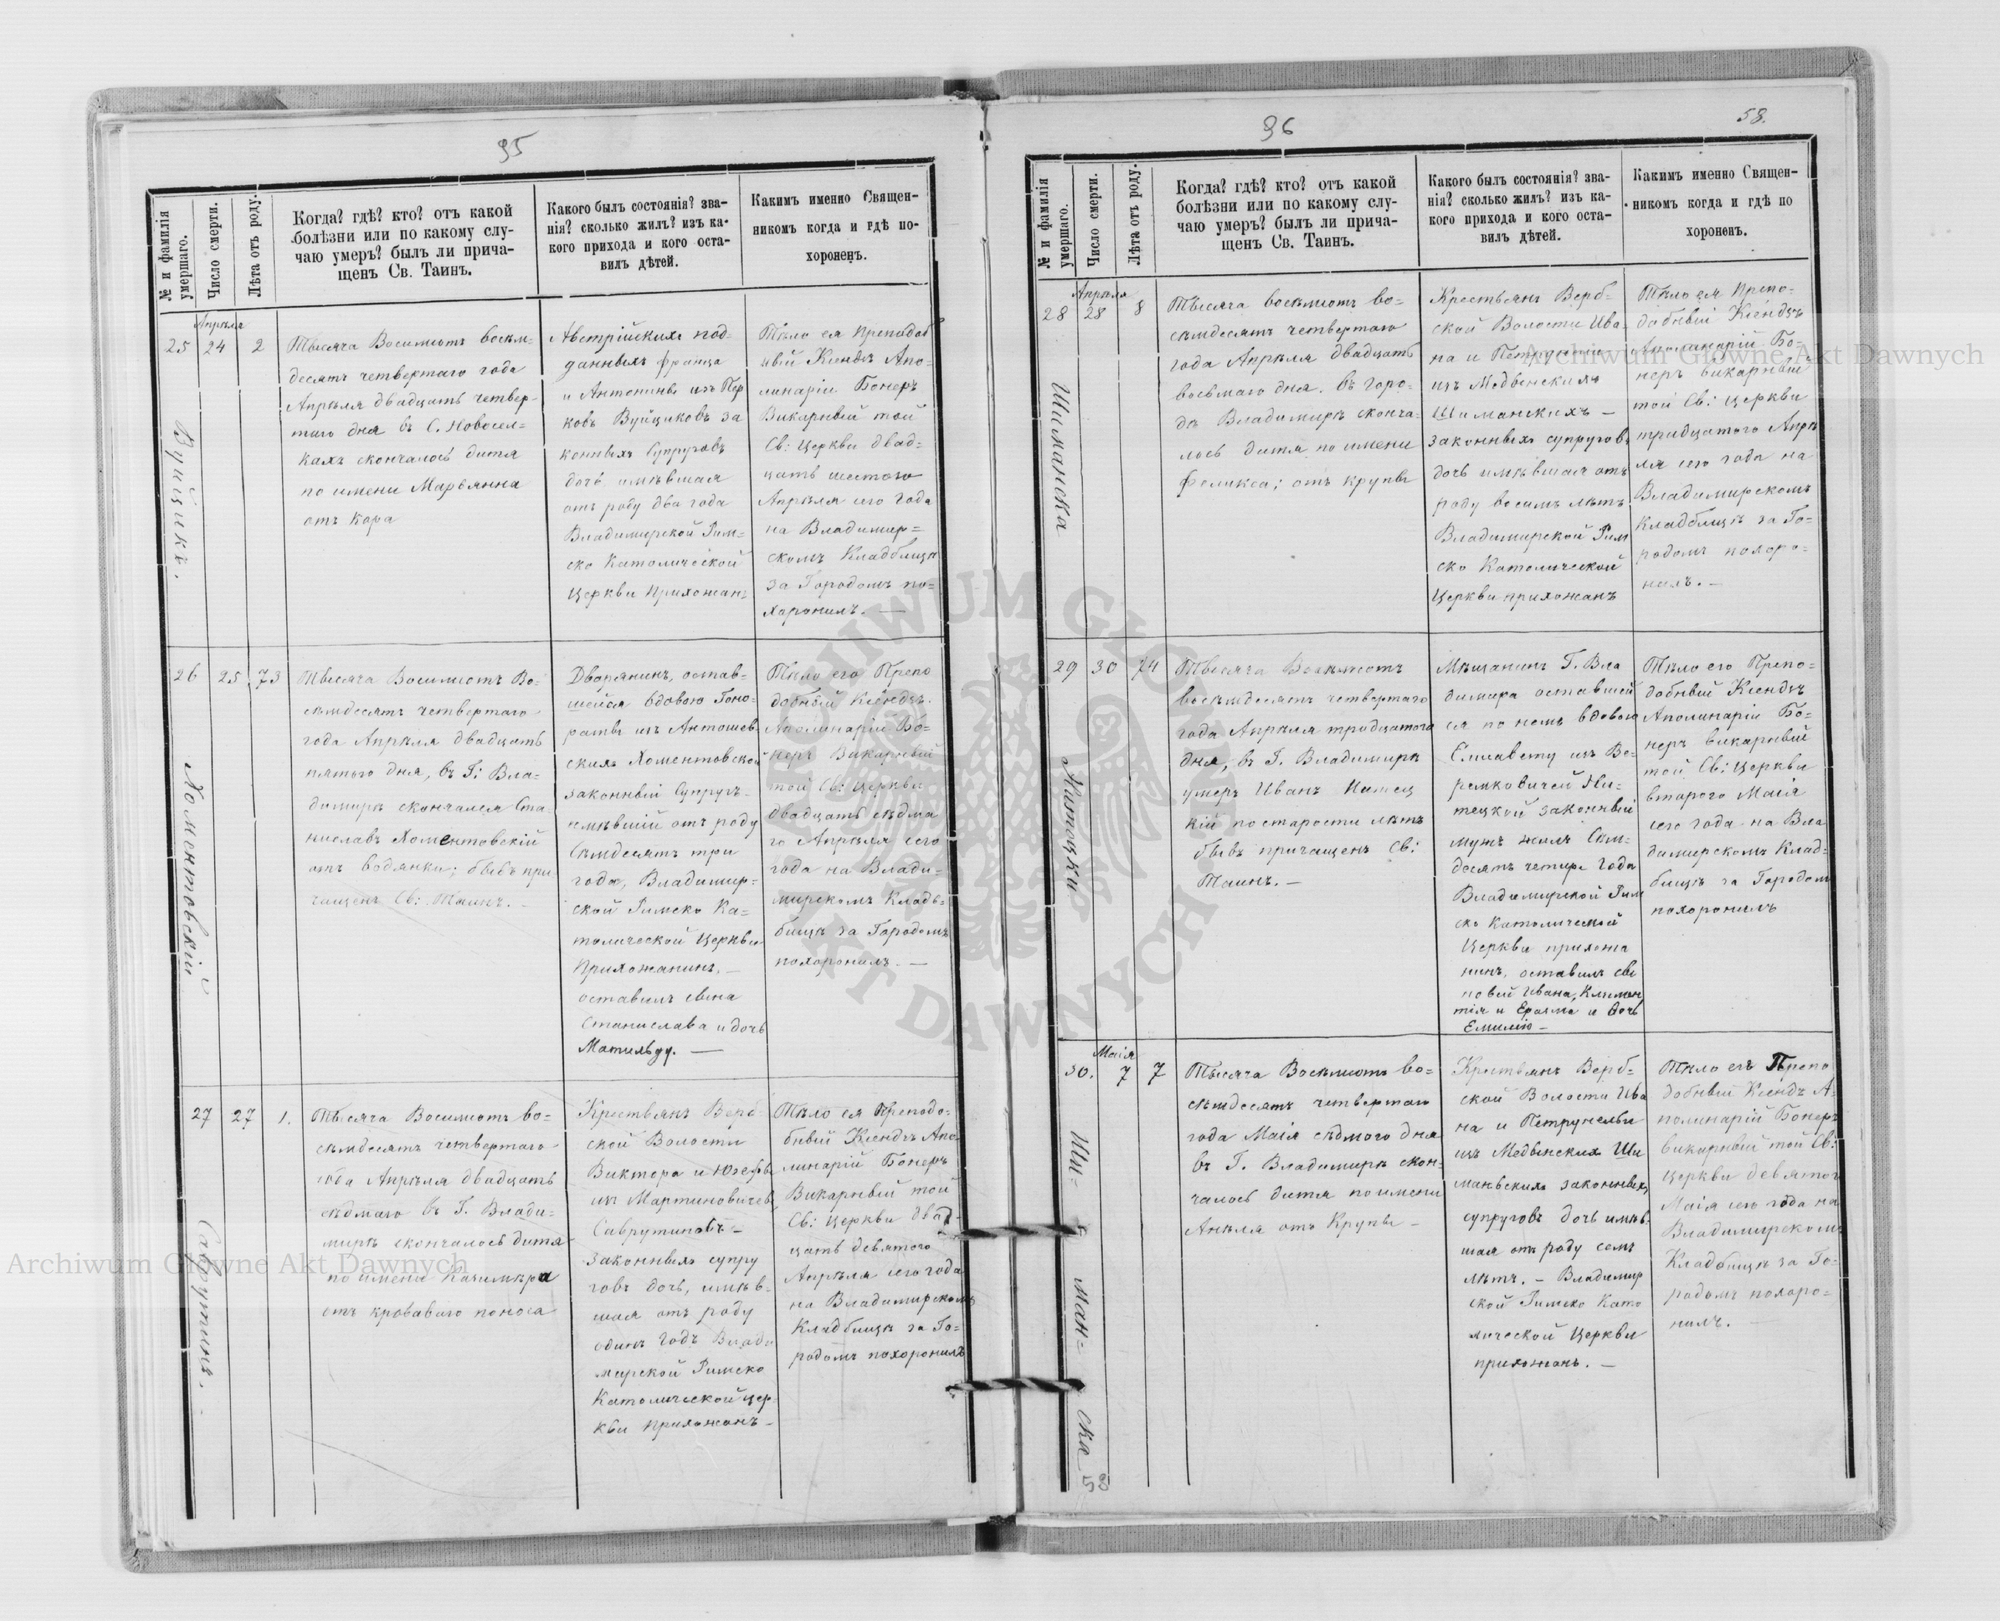 95
№ и фамилія умершаго.
Число смерти.
Лѣта отъ роду.
Когда? гдѣ? кто? отъ какой
болѣзни или по какому слу-
чаю умеръ? былъ ли прича-
щенъ Св. Таинъ.
Какого былъ состоянія? зва-
нія? сколько жилъ? изъ ка-
кого прихода и кого оста-
вилъ дѣтей.
Какимъ именно Священ-
никомъ когда и гдѣ по-
хороненъ.
Апрѣля
25 24 2
Вуйцикъ.
Тысяча Восимсотъ восем-
десятъ четвертаго года
Апрѣля двадцать четвер-
таго дня въ С. Новосел-
кахъ скончалось дитя
по имени Марьянна
отъ кора
Австрійскихъ под-
данныхъ Франца
и Антонины изъ Пер
ковъ Вуйциковъ за
конныхъ Супруговъ
дочь имѣвшая
отъ роду два года
Владимирской Рим-
ско Католической
Церкви Прихожанъ
Тѣло ея Преподоб
ный Ксіендзъ Апо-
линарій Бонеръ
Викарный той
Св: Церкви двад-
цать шестого
Апрѣля сего года
на Владимир-
скомъ Кладбищѣ
за Городомъ по-
харонилъ. —
26 25 73
Хоментовскій
Тысяча Восимсотъ Во-
семдесятъ четвертаго
года Апрѣля двадцать
пятого дня, въ Г: Вла-
димирѣ скончался Ста-
ниславъ Хоментовскій
отъ водянки; бывъ при
чащенъ Св: Таинъ. —
Дворянинъ, остав-
шейся вдовою Гоно-
раты изъ Антошев-
скихъ Хоментовской
законный Супругъ
имѣвшій отъ роду
Семдесятъ три
года, Владимир-
ской Римско Ка-
толической Церкви
Прихожанинъ. —
оставилъ сына
Станислава и дочь
Матильду. —
Тѣло его Препо
добный Ксіендзъ
Аполинарій Бо-
неръ Викарный
той Св: Церкви
двадцать седма
го Апрѣля сего
года на Влади-
мирскомъ Кладь-
бищѣ за Городомъ
похоронилъ. —
27 27 1.
Саврутина.
Тысяча Восимсотъ во-
семдесятъ четвертаго
года Апрѣля двадцать
седмаго въ Г. Влади-
мирѣ скончалось дитя
по имени Казимѣра
отъ кроваваго поноса
Крестьянъ Верб-
ской Волости
Виктора и Юзефы
изъ Мартиновичевъ
Саврутиновъ —
законныхъ супру
говъ дочь, имѣв-
шая отъ роду
одинъ годъ Влади
мирской Римско
Католической Цер-
кви Прихожанъ —
Тѣло ея Преподо-
бный Ксіендзъ Апо-
линарій Бонеръ
Викарный той
Св: Церкви двад-
цать девятого
Апрѣля сего года
на Владимирскомъ
Кладбищѣ за Го-
родомъ похоронилъ
96
58.
№ и фамилія умершаго.
Число смерти.
Лѣта отъ роду.
Когда? гдѣ? кто? отъ какой
болѣзни или по какому слу-
чаю умеръ? былъ ли прича-
щенъ Св. Таинъ.
Какого былъ состоянія? зва-
нія? сколько жилъ? изъ ка-
кого прихода и кого оста-
вилъ дѣтей.
Какимъ именно Священ-
никомъ когда и гдѣ по
хороненъ.
Апрѣля
28 28 8
Шиманска
Тысяча восемсотъ во-
семдесятъ четвертаго
года Апрѣля двадцать
восьмаго дня. въ горо-
дѣ Владимирѣ сконча-
лось дитя по имени
Феликса; отъ крупы
Крестьянъ Верб-
ской Волости Ива-
на и Петрунели
изъ Медвинскихъ
Шиманскихъ —
законныхъ супруговъ
дочь имѣвшая отъ
роду восимъ лѣтъ
Владимирской Рим
ско Католической
Церкви прихожанъ
Тѣло ея Препо-
добный Ксіендзъ
Аполинарій Бо-
неръ викарный
той Св: Церкви
тридцатого Апрѣ
ля сего года на
Владимирскомъ
Кладбищѣ за Го-
родомъ похоро-
нилъ. —
29 30 74
Тысяча Восемсотъ
восемдесятъ четвертаго
года Апрѣля тридцатого
дня, въ Г. Владимирѣ
умеръ Иванъ
кій по старости лѣтъ
бывъ причащенъ Св:
Таинъ. —
Мѣщанинъ Г. Вла
димира оставшей
ся по немъ вдовою
Елисавету изъ Ве-
ремковичей Ни-
тецкой законный
мужъ жилъ Сем-
десятъ четыре года
Владимирской Рим
ско Католической
Церкви прихожа
нинъ, оставилъ сы
новей Ивана, Климен
тія и Еразма и дочь
Емилію —
Тѣло его Препо-
добный Ксіендзъ
Аполинарій Бо-
неръ викарный
той Св: Церкви
второго Маія
сего года на Вла
димирскомъ Клад-
бищѣ за Городомъ
похоронилъ
Маія
30. 7 7
Ши- ман- ска
Тысяча Восемсотъ во-
семдесятъ четвертаго
года Маія седмого дня
въ Г. Владимирѣ скон-
чалось дитя по имени
Анеля отъ Крупы —
Крестьянъ Верб-
ской Волости Ива
на и Петрунели
изъ Медвинскихъ Ши
манскихъ законныхъ
супруговъ дочь имѣв
шая отъ роду семъ
лѣтъ. — Владимир
ской Римско Като
лической Церкви
прихожанъ. —
Тѣло ея Препо
добный Ксіендзъ А-
полинарій Бонеръ
викарный той Св:
Церкви девятого
Маія сего года на
Владимирскомъ
Кладбищѣ за Го-
родомъ похоро-
нилъ. —
58
Archiwum Główne Akt Dawnych
Archiwum Główne Akt Dawnych
ARCHIWUM GŁÓWNE AKT DAWNYCH